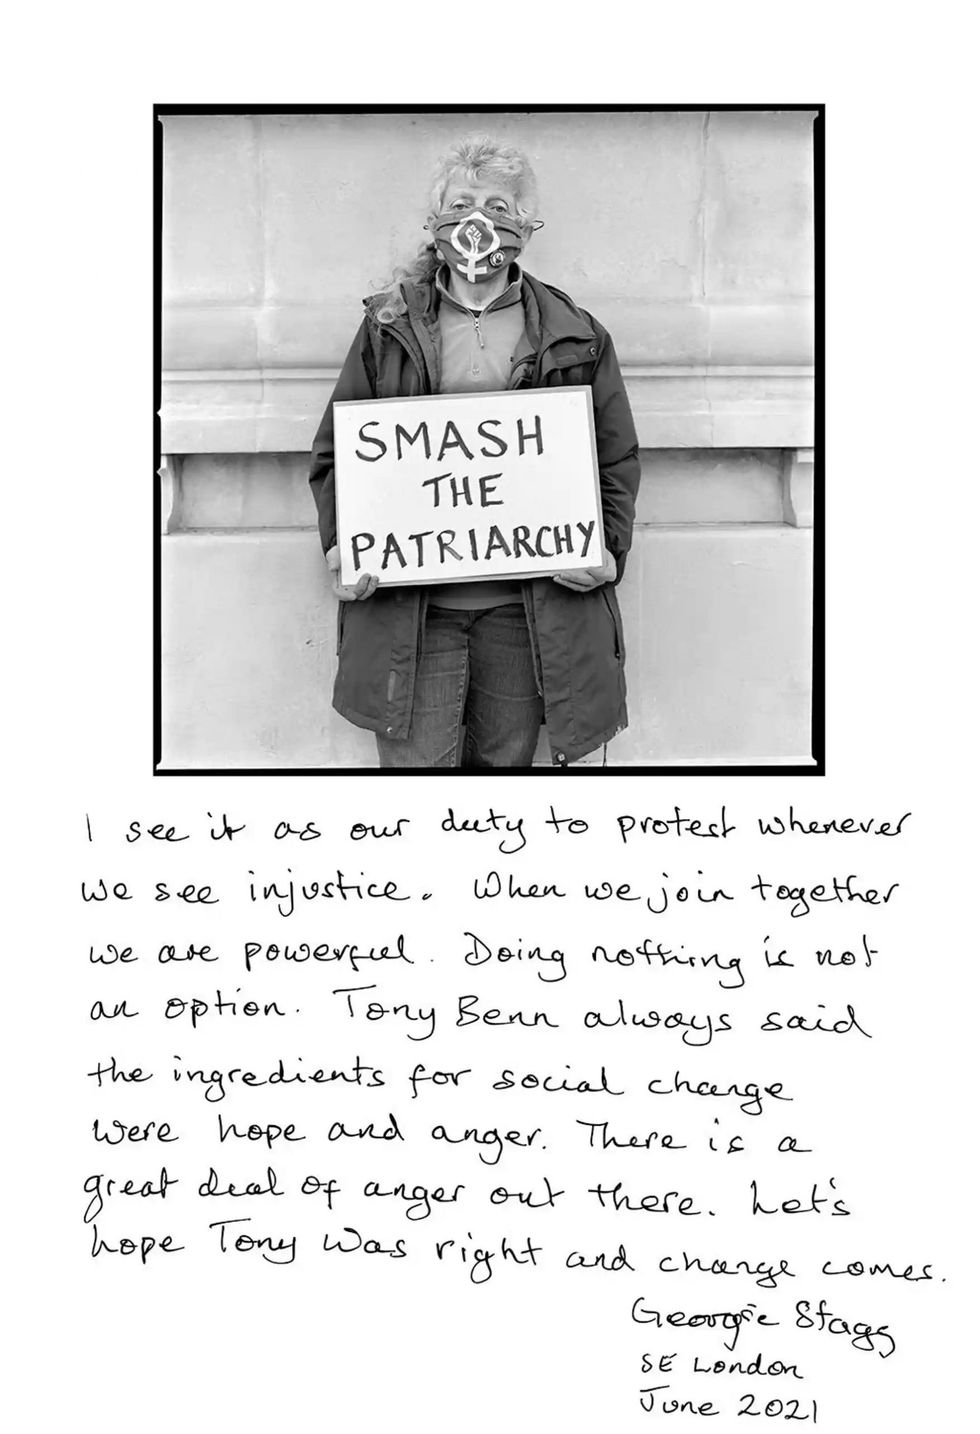 SMASH
THE
PATRIARCHY
I see it as our duty to protest whenever
we see injustice. When we join together
we are powerful. Doing nothing is not
an option. Tony Benn always said
the ingredients for social change
were hope and anger. There is a
great deal of anger out there. Let's
hope Tony was right and change comes.
Georgie Stagg
SE London
June 2021